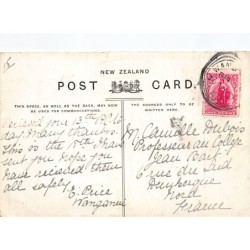 NEW ZEALAND
POST CARD.
THIS SPACE, AS WELL AS THE BACK, MAY
BE USED FOR COMMUNICATIONS.
THE ADDRESS ONLY TO BE
WRITTEN HERE.
received your 13th P.C. to
day many thanks.
This is the 10th I have
sent you hope you
have received them
all safely.
E. Price
Wanganui
M. Camille Dubois
Professeur au Collège
Jean Bart
rue du Sud
Dunkerque
Nord
France